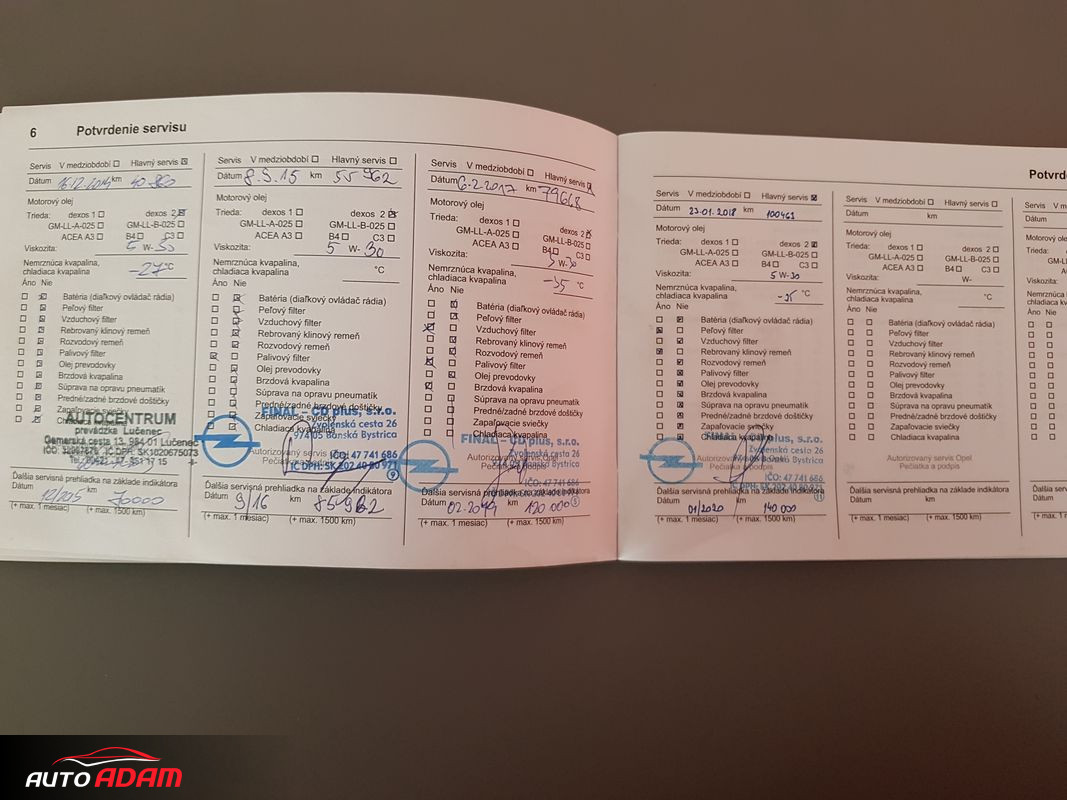 6 Potvrdenie servisu
Servis V medziobdobí Hlavný servis
Dátum 16.12.2014 km
Motorový olej
Trieda: dexos 1 dexos 2
GM-LL-A-025 GM-LL-B-025
ACEA A3 B4 C3
Viskozita: 5 W-30
Nemrznúca kvapalina,
chladiaca kvapalina -27 °C
Áno Nie
Batéria (diaľkový ovládač rádia)
Peľový filter
Vzduchový filter
Rebrovaný klinový remeň
Rozvodový remeň
Palivový filter
Olej prevodovky
Brzdová kvapalina
Súprava na opravu pneumatík
Predné/zadné brzdové doštičky
Zapaľovacie sviečky
AUTOCENTRUM
prevádzka Lučenec
Gemerská cesta 13, 984 01 Lučenec
IČ DPH: SK1020675073
Ďalšia servisná prehliadka na základe indikátora
Dátum km 70000
(+ max. 1 mesiac) (+ max. 1500 km)
Servis V medziobdobí Hlavný servis
Dátum 8.9.15 km 55962
Motorový olej
Trieda: dexos 1 dexos 2
GM-LL-A-025 GM-LL-B-025
ACEA A3 B4 C3
Viskozita: 5 W-30
Nemrznúca kvapalina,
chladiaca kvapalina °C
Áno Nie
Batéria (diaľkový ovládač rádia)
Peľový filter
Vzduchový filter
Rebrovaný klinový remeň
Rozvodový remeň
Palivový filter
Olej prevodovky
Brzdová kvapalina
Súprava na opravu pneumatík
Predné/zadné brzdové doštičky
Zapaľovacie sviečky
Chladiaca kvapalina
FINAL – CD plus, s.r.o.
Zvolenská cesta 26
974 05 Banská Bystrica
Autorizovaný servis Opel
IČO: 47 741 686
IČ DPH: SK 202 40 80 971
9
Ďalšia servisná prehliadka na základe indikátora
Dátum 9/16 km 85962
(+ max. 1 mesiac) (+ max. 1500 km)
Servis V medziobdobí Hlavný servis
Dátum 6.2.2017 km 79668
Motorový olej
Trieda: dexos 1 dexos 2
GM-LL-A-025 GM-LL-B-025
ACEA A3 B4 C3
Viskozita: 5 W-30
Nemrznúca kvapalina,
chladiaca kvapalina -35 °C
Áno Nie
Batéria (diaľkový ovládač rádia)
Peľový filter
Vzduchový filter
Rebrovaný klinový remeň
Rozvodový remeň
Palivový filter
Olej prevodovky
Brzdová kvapalina
Súprava na opravu pneumatík
Predné/zadné brzdové doštičky
Zapaľovacie sviečky
Chladiaca kvapalina
FINAL – CD plus, s.r.o.
Zvolenská cesta 26
974 05 Banská Bystrica
Autorizovaný servis Opel
Pečiatka a podpis
IČO: 47 741 686
Ďalšia servisná prehliadka na základe indikátora
Dátum 02-2019 km 120 000
(+ max. 1 mesiac) (+ max. 1500 km)
Servis V medziobdobí Hlavný servis
Dátum 23-01.2018 km 100461
Motorový olej
Trieda: dexos 1 dexos 2
GM-LL-A-025 GM-LL-B-025
ACEA A3 B4 C3
Viskozita: 5 W-30
Nemrznúca kvapalina,
chladiaca kvapalina -35 °C
Áno Nie
Batéria (diaľkový ovládač rádia)
Peľový filter
Vzduchový filter
Rebrovaný klinový remeň
Rozvodový remeň
Palivový filter
Olej prevodovky
Brzdová kvapalina
Súprava na opravu pneumatík
Predné/zadné brzdové doštičky
Zapaľovacie sviečky
Chladiaca kvapalina
plus, s.r.o.
Zvolenská cesta 26
974 05 Banská Bystrica
Autorizovaný servis Opel
Pečiatka a podpis
IČO: 47 741 686
IČ DPH: SK 202 40 80 971
Ďalšia servisná prehliadka na základe indikátora
Dátum 01/2020 km 140 000
(+ max. 1 mesiac) (+ max. 1500 km)
Servis V medziobdobí Hlavný servis
Dátum km
Motorový olej
Trieda: dexos 1 dexos 2
GM-LL-A-025 GM-LL-B-025
ACEA A3 B4 C3
Viskozita: W-
Nemrznúca kvapalina,
chladiaca kvapalina °C
Áno Nie
Batéria (diaľkový ovládač rádia)
Peľový filter
Vzduchový filter
Rebrovaný klinový remeň
Rozvodový remeň
Palivový filter
Olej prevodovky
Brzdová kvapalina
Súprava na opravu pneumatík
Predné/zadné brzdové doštičky
Zapaľovacie sviečky
Chladiaca kvapalina
Autorizovaný servis Opel
Pečiatka a podpis
Ďalšia servisná prehliadka na základe indikátora
Dátum km
(+ max. 1 mesiac) (+ max. 1500 km)
Potvrde
Servis V me
Dátum
Motorový olej
Trieda:
GM-L
Viskozita:
Nemrznúca kva
chladiaca kvapa
Áno Nie
Ďalšia servisná
Dátum
(+ max. 1 m
AUTO ADAM